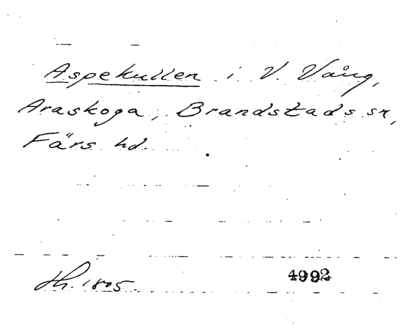 Aspekullen i V. Vång,
Araskoga, Brandstads sn,
Färs hd.
1805. 4992